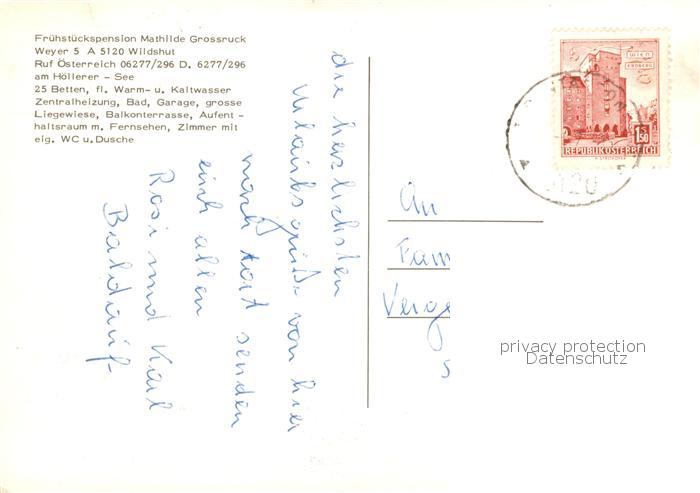 Frühstückspension Mathilde Grossruck
Weyer 5 A 5120 Wildshut
Ruf Österreich 06277/296 D. 6277/296
am Höllerer - See
25 Betten, fl. Warm- u. Kaltwasser
Zentralheizung, Bad, Garage, grosse
Liegewiese, Balkonterrasse, Aufent-
haltsraum m. Fernsehen, Zimmer mit
eig. WC u. Dusche
die herzlichsten
Urlaubsgrüße von hier
nach dort senden
euch allen
Rosi und Karl
Balduuf
WIEN
ERDBERG
REPUBLIK ÖSTERREICH
1.50
5120
An
Fam
Verge
privacy protection
Datenschutz